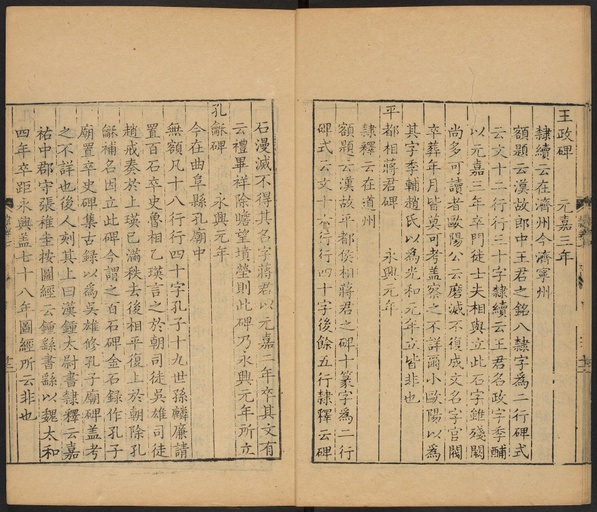 王政碑　元嘉三年
隸續云在濟州今濟寧州
額題云漢故郎中王君之銘八隸字為二行碑式
云文十二行行三十字隸續云王君名政字季酺
以元嘉三年卒門徒士夫相與立此石字雖殘闕
尚多可讀者歐陽公云磨滅不復成文名字官閥
卒葬年月皆莫可考蓋察之不詳爾小歐陽以為
其字季輔趙氏以為光和元年立皆非也
平都相蔣君碑　永興元年
隸釋云在道州
額題云漢故平都侯相蔣君之碑十篆字為二行
碑式云文十六行行四十字後餘五行隸釋云碑
石漫滅不得其名字蔣君以元嘉二年卒其文有
云禮畢祥除瞻望墳塋則此碑乃永興元年所立
孔龢碑　永興元年
今在曲阜縣孔廟中
無額凡十八行行四十字孔子十九世孫麟廉請
置百石卒史魯相乙瑛言之於朝司徒吳雄司徒
趙戒奏於上瑛已滿秩去後相平復上於朝除孔
龢補名因立此碑今謂之百石碑金石錄作孔子
廟置卒史碑集古錄以為吳雄修孔子廟碑蓋考
之不詳也後人刻其上曰漢鍾太尉書隸釋云嘉
祐中郡守張稚圭按圖經云鍾繇書繇以魏太和
四年卒距永興蓋七十八年圖經所云非也